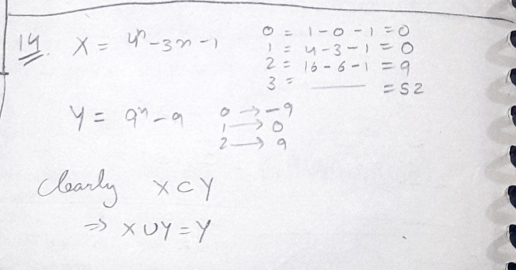 14
X = 4ⁿ - 3n - 1
0 = 1 - 0 - 1 = 0
1 = 4 - 3 - 1 = 0
2 = 16 - 6 - 1 = 9
3 = ____ = 52
Y = 9ⁿ - 9
0 → -9
1 → 0
2 → 9
Clearly X ⊂ Y
⇒ X ∪ Y = Y